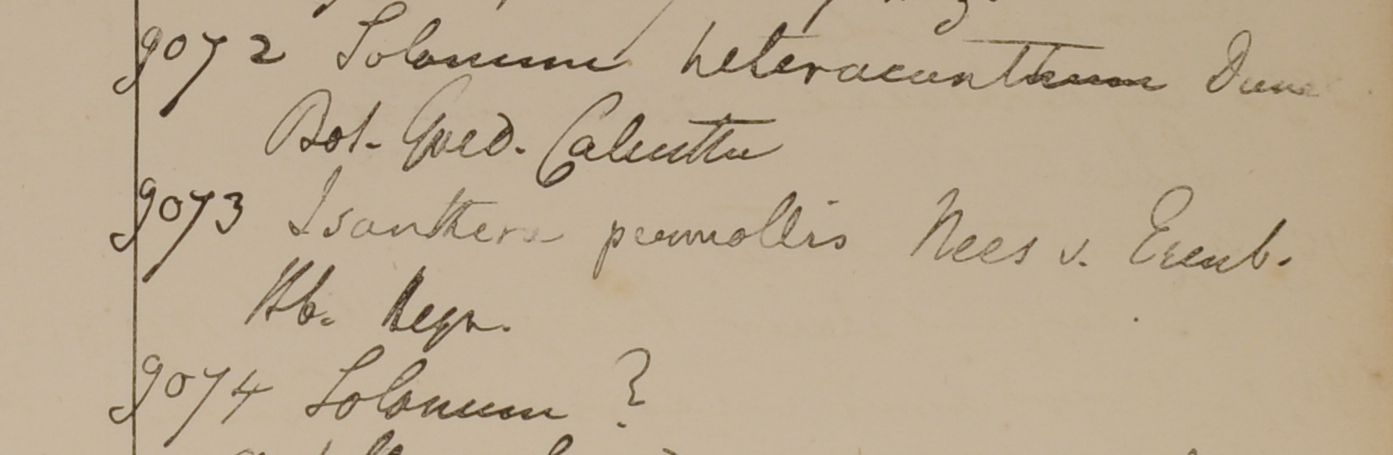 9072 Solanum heteracanthum Duna
Bot. Gard. Calcutta
9073 Isanthera permollis Nees v. Esenb.
Hb. Heyn.
9074 Solanum ?